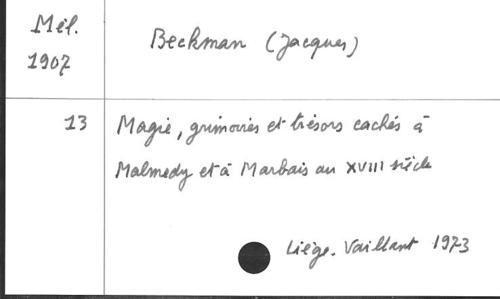 Mél.
1907
Beckman (Jacques)
13
Magie, grimoires et trésors cachés à
Malmedy et à Marbais au XVIII siècle
Liège. Vaillant 1973